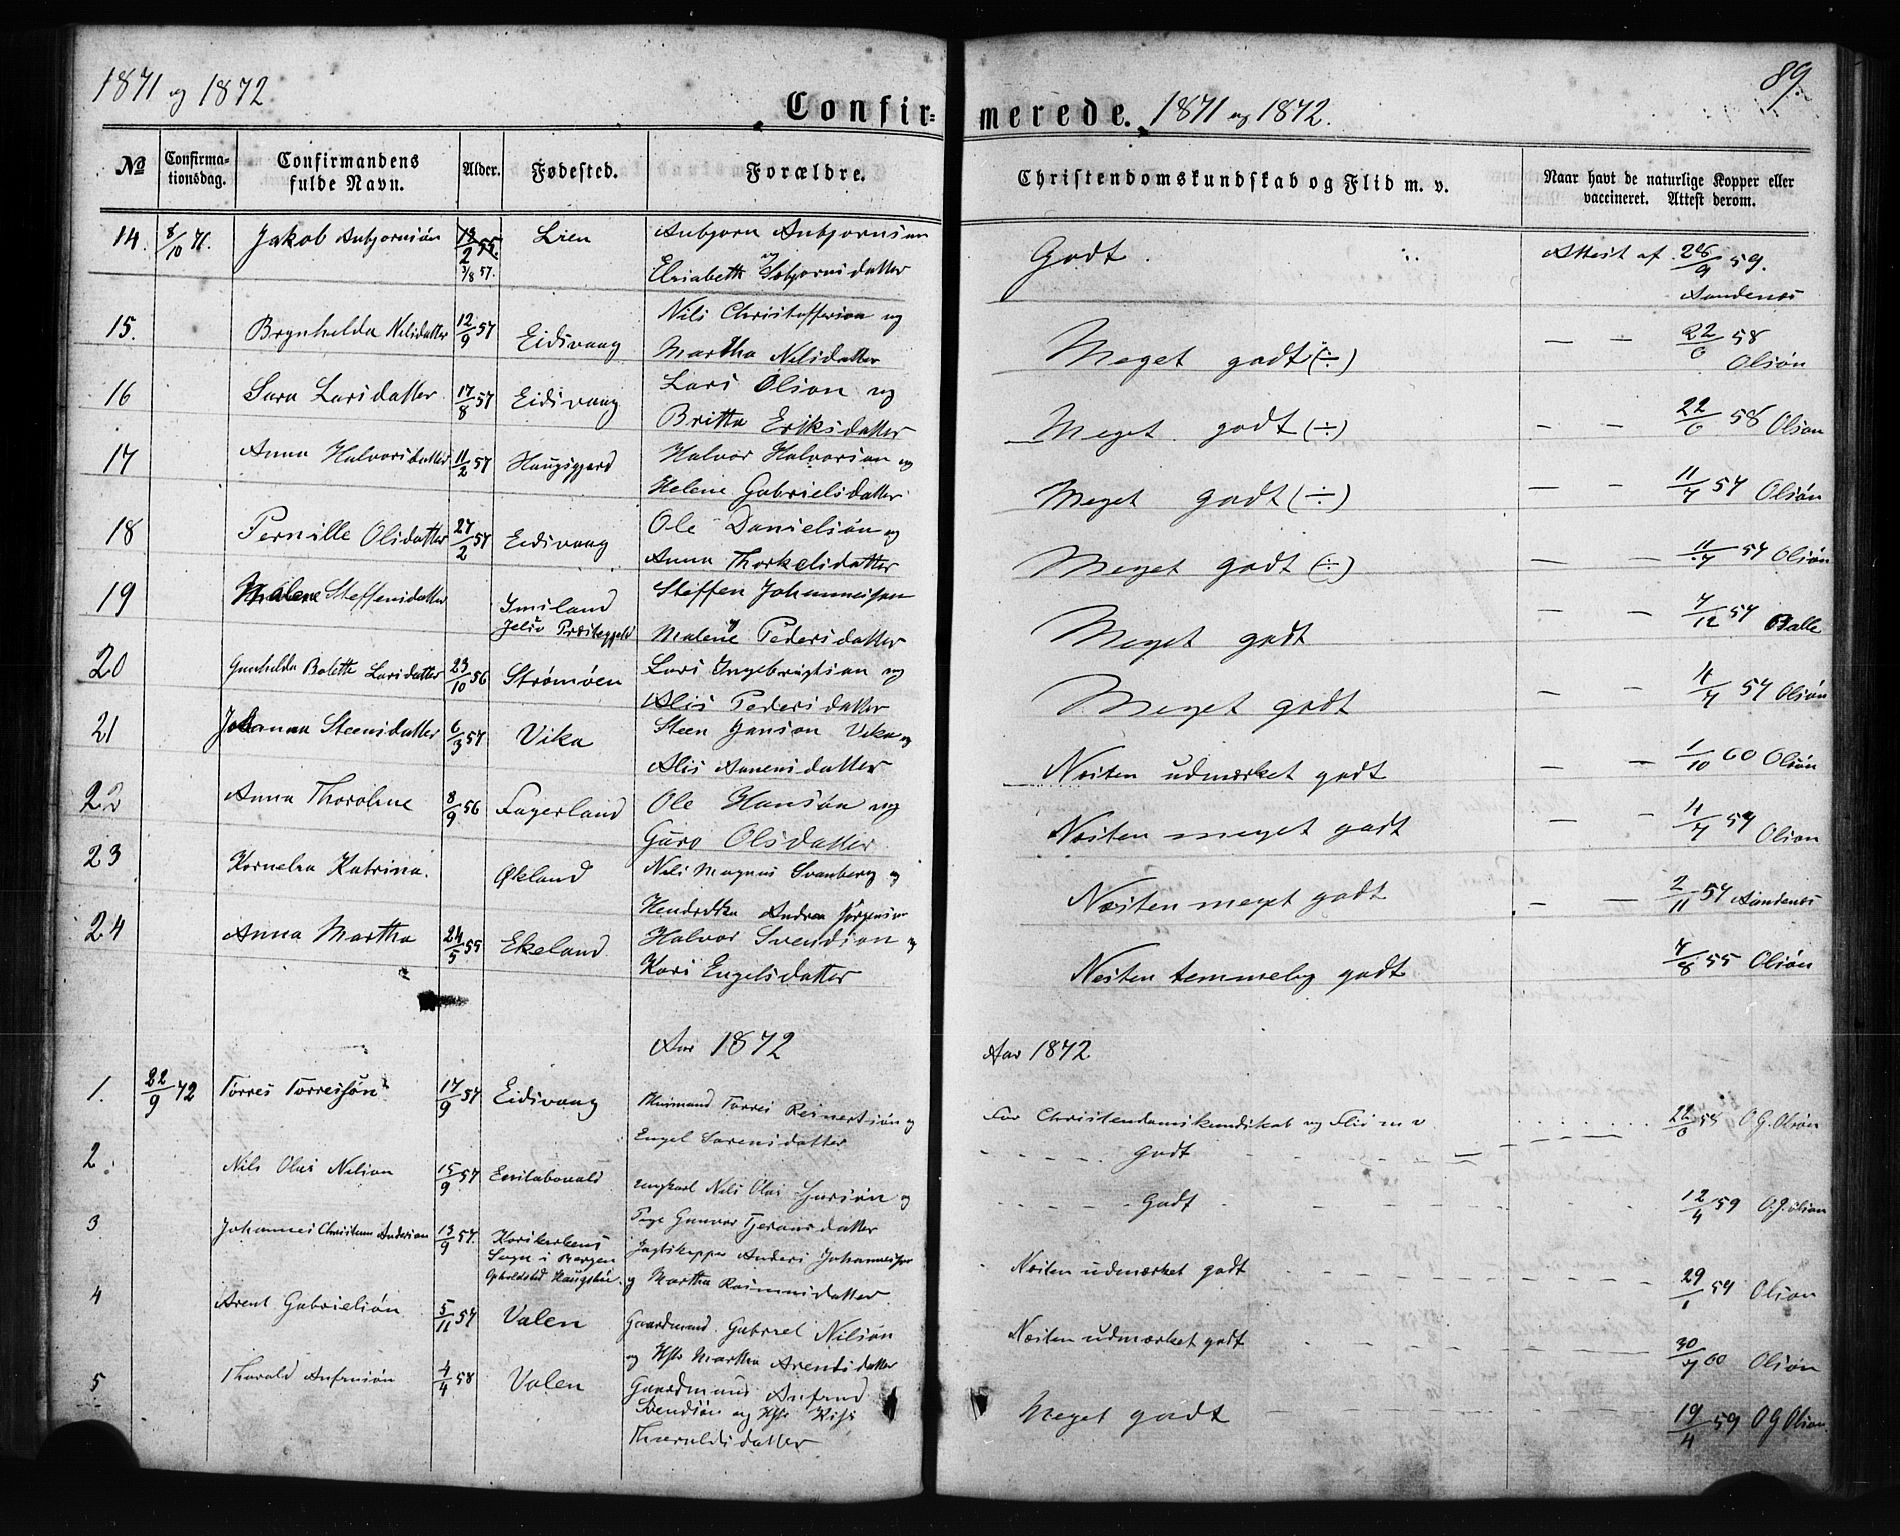 1871 og 1872
89.
Confir= merede. 1871 og 1872.
No
Confirma-
tionsdag.
Confirmandens
fulde Navn.
Alder.
Fødested.
Forældre.
Christendomskundskab og Flid m. v.
Naar havt de naturlige Kopper eller
vaccineret. Attest derom.
14. 8/10 71. Jakob Anbjørnsøn Lien Anbjørn Anbjørnsøn
og
Elisabeth
Godt. Attest af 59.
15. Brynhelda Nilsdatter 12/9 57 Eidsvaag Nils Christoffersen og
Martha Nilsdatter
Meget godt (÷) — — 22/6 58
Olsøn
16 Sara Larsdatter 17/8 57 Eidsvaag Lars Olson og
Britta Eriksdatter
Meget godt (÷) — — 22/6 58 Olson
17 Anna Halvorsdatter 11/2 57 Haugsgjerd Halvor Halvorsen og
Helene Gabrielsdatter
Meget godt (÷) — — 11/7 57 Olsøn
18 Pernille Olsdatter 27/2 57 Eidsvaag Ole Danielsøn og
Anna Thorkelsdatter
Meget godt (÷) — — 11/7 57 Olsøn
19 Malene Steffensdatter Imsland Steffen Johannessen
Jelsø Præstegjeld og
Malene Pedersdatter
Meget godt — — 7/12 57 Balle
20 Gunhelda Bolette Larsdatter 23/10 56 Strømøen Lars Ingebrigtsen og
Alis Pedersdatter
Meget godt — — 57 Olsøn
21 Johanna Steensdatter 6/3 57 Vika Steen Jansøn Vika og
Alis Aanensdatter
Næsten udmærket godt — — 1/10 60 Olsøn
22 Anna Thoroline 8/9 56 Fagerland Ole Hansøn og
Guro Olsdatter
Næsten meget godt — — 57 Olson
23 Kornelia Katrina. Økland Nils Magnus Svanberg og
Andrea
Næsten meget godt — — 2/11 57
24 Anna Martha 24/5 55 Ekeland Halvor Svendsøn og
Kari Engelsdatter
Næsten temmelig godt 7/8 55 Olsøn
Aar 1872
Aar 1872
1. 22/9 72 Torres Torresøn 17/9 57 Eidsvaag Torres Reinertsøn og
Engel Sørensdatter
For Christendomskundskab og Flid m v
Godt O G. Olsøn
2. Nils Olai Nilson 15/9 57 Ungkarl Nils Olai og
Pige Gunvor
Godt 12/4 59 O.G. Olson
3 Johannes Christian Andersen 13/9 57. Korskirkens
Sogn i Bergen
Jagtskipper Anders Johannessen
og Martha Rasmusdatter
Næsten udmærket godt 29/1 59 Olson
4 Arent Gabrielsøn 5/11 57 Valen Gaardmand Gabriel Nilsøn
og Hstr Martha Arentsdatter
Næsten udmærket godt 30/7 60 Olsøn
5 4/4 58 Valen Gaardmand
Svendsøn og Hstr
Thoraldsdatter
Meget godt 19/4 59 O G Olson.